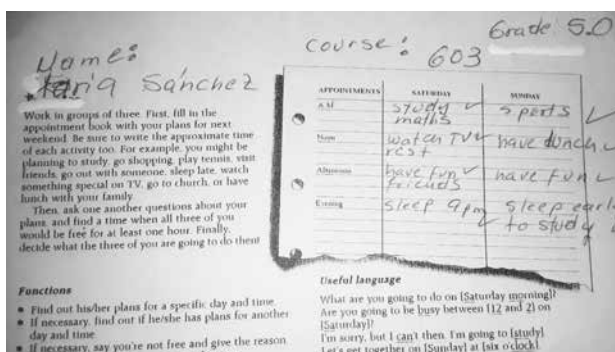 Grade 5.0
Name:
course: 603
Sánchez
Work in groups of three. First, fill in the
appointment book with your plans for next
weekend. Be sure to write the approximate time
of each activity too. For example, you might be
planning to study, go shopping, play tennis, visit
friends, go out with someone, sleep late, watch
something special on TV, go to church, or have
lunch with your family.
Then, ask one another questions about your
plans, and find a time when all three of you
would be free for at least one hour. Finally,
decide what the three of you are going to do then!
APPOINTMENTS SATURDAY SUNDAY
A.M. study ✓ sports ✓
maths
Noon watch TV ✓ have lunch ✓
rest
Afternoon have fun ✓ have fun ✓
friends
Evening sleep 9pm sleep early
to study
Functions
• Find out his/her plans for a specific day and time.
• If necessary, find out if he/she has plans for another
day and time.
• If necessary, say you're not free and give the reason.
Useful language
What are you going to do on [Saturday morning]?
Are you going to be busy between [12 and 2] on
[Saturday]?
I'm sorry, but I can't then. I'm going to [study].
Let's get together on [Sunday] at [six o'clock].